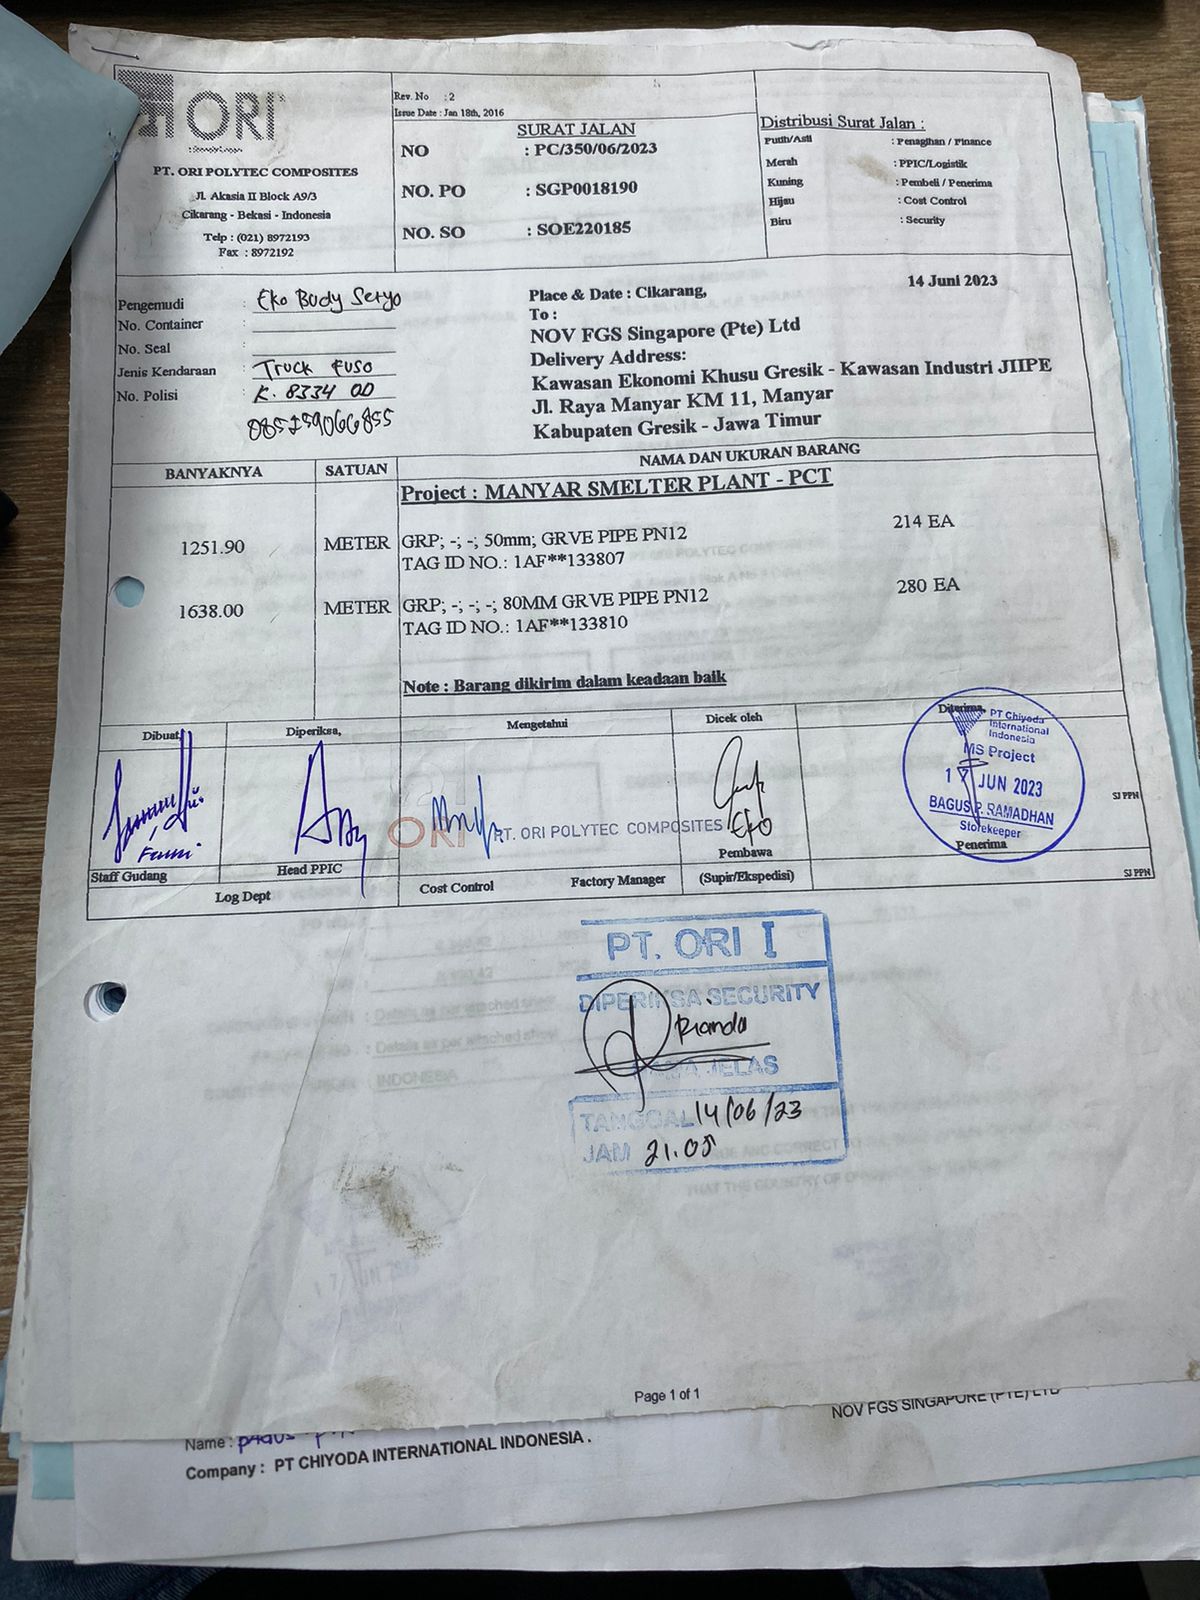 ORI
PT. ORI POLYTEC COMPOSITES
Jl. Akasia II Block A9/3
Cikarang - Bekasi - Indonesia
Telp : (021) 8972193
Fax : 8972192
Rev. No : 2
Issue Date : Jan 18th, 2016
SURAT JALAN
NO : PC/350/06/2023
NO. PO : SGP0018190
NO. SO : SOE220185
Distribusi Surat Jalan :
Putih/Asli : Penagihan / Finance
Merah : PPIC/Logistik
Kuning : Pembeli / Penerima
Hijau : Cost Control
Biru : Security
Pengemudi : Eko Budy Setyo
No. Container :
No. Seal :
Jenis Kendaraan : Truck Fuso
No. Polisi : K. 8334 OD
085259066855
Place & Date : Cikarang, 14 Juni 2023
To :
NOV FGS Singapore (Pte) Ltd
Delivery Address:
Kawasan Ekonomi Khusu Gresik - Kawasan Industri JIIPE
Jl. Raya Manyar KM 11, Manyar
Kabupaten Gresik - Jawa Timur
BANYAKNYA SATUAN NAMA DAN UKURAN BARANG
Project : MANYAR SMELTER PLANT - PCT
1251.90 METER GRP; -; -; 50mm; GRVE PIPE PN12 214 EA
TAG ID NO.: 1AF**133807
1638.00 METER GRP; -; -; -; 80MM GRVE PIPE PN12 280 EA
TAG ID NO.: 1AF**133810
Note : Barang dikirim dalam keadaan baik
Dibuat, Diperiksa, Mengetahui Dicek oleh Diterima,
PT Chiyoda
International
Indonesia
MS Project
17 JUN 2023
BAGUS P. RAMADHAN
Storekeeper
Penerima
SJ PPN
ORI PT. ORI POLYTEC COMPOSITES
Eko
Pembawa
Staff Gudang Head PPIC Cost Control Factory Manager (Supir/Ekspedisi)
SJ PPN
Log Dept
PT. ORI I
DIPERIKSA SECURITY
Rianda
NAMA JELAS
TANGGAL 14/06/23
JAM 21.05
Page 1 of 1
NOV FGS SINGAPORE (PTE) LTD
Name :
Company : PT CHIYODA INTERNATIONAL INDONESIA .